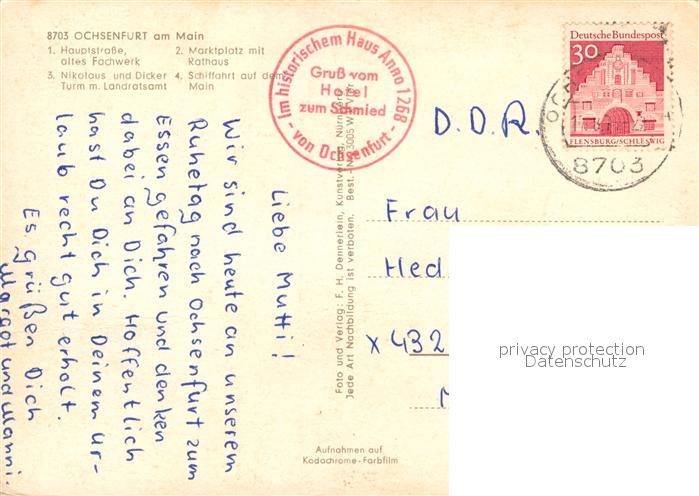 8703 OCHSENFURT am Main
1. Hauptstraße, altes Fachwerk
2. Marktplatz mit Rathaus
3. Nikolaus und Dicker Turm m. Landratsamt
4. Schiffahrt auf dem Main
Im historischem Haus Anno 1268
Gruß vom
Hotel
zum Schmied
- von Ochsenfurt -
Deutsche Bundespost
30
FLENSBURG/SCHLESWIG
8703
Liebe Mutti!
Wir sind heute an unserem
Ruhetag nach Ochsenfurt zum
Essen gefahren und denken
dabei an Dich. Hoffentlich
hast Du Dich in Deinem Ur-
laub recht gut erholt.
Es grüßen Dich
Margot und Manni.
Foto und Verlag: F. H. Dennerlein, Kunstverlag, Nürnberg
Jede Art Nachbildung ist verboten. Best.-Nr.
D.D.R.
Frau
Hed
X 432
Aufnahmen auf
Kodachrome-Farbfilm
privacy protection
Datenschutz